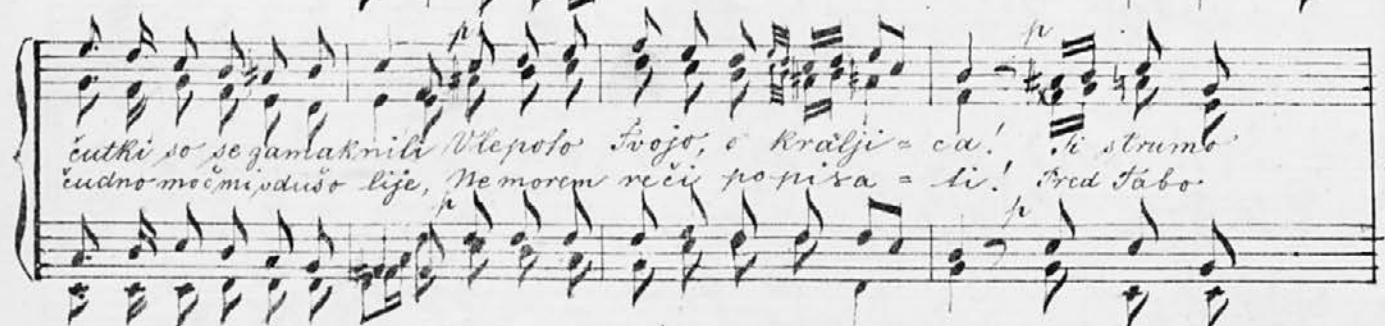 p p
čutki so se zamaknili V lepoto Tvojo, o kralji = ca! Ti strumo
čudno moč mi v dušo lije, Ne morem reči popisa = ti! Pred Tabo
p p